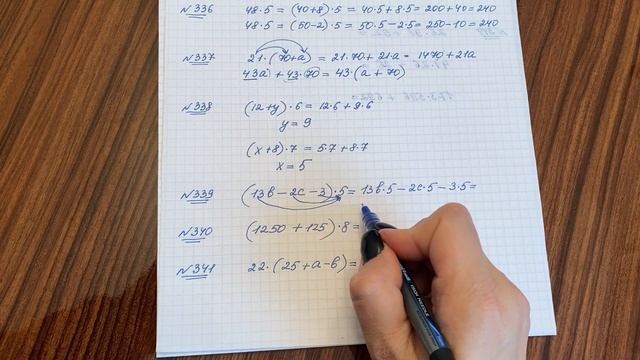 №336 48·5 = (40+8)·5 = 40·5+8·5 = 200+40=240
48·5 = (50-2)·5 = 50·5-2·5= 250-10=240
№337 21·(70+a) = 21·70+21·a= 1470+21a
43a+43·70 = 43·(a+70)
№338 (12+y)·6=12·6+9·6
y=9
(x+8)·7=5·7+8·7
x=5
№339 (13b-2c-3)·5=13b·5-2c·5-3·5=
№340 (1250+125)·8=
№341 22·(25+a-b)=